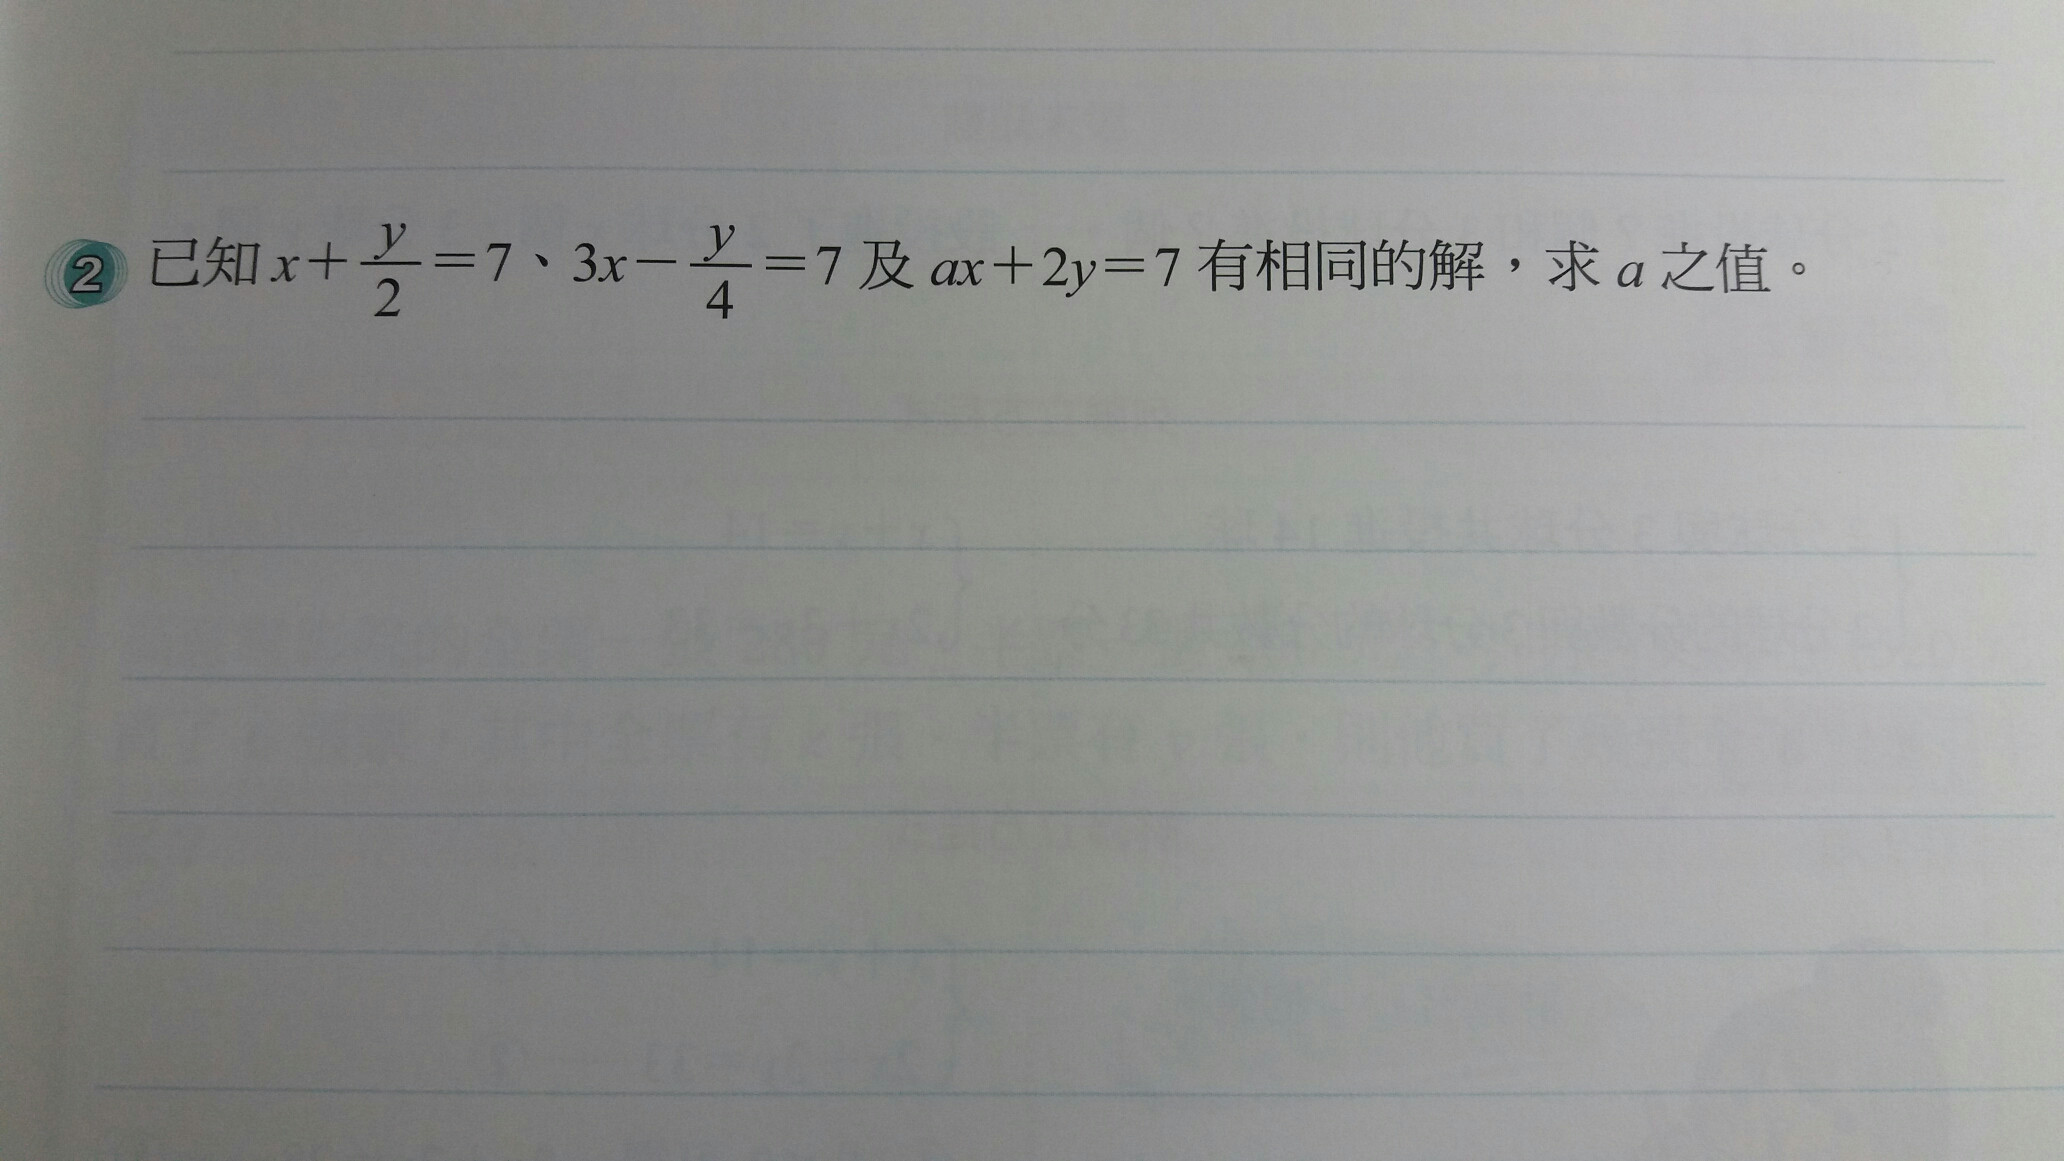 2 已知 x+y/2=7、3x−y/4=7 及 ax+2y=7 有相同的解，求 a 之值。